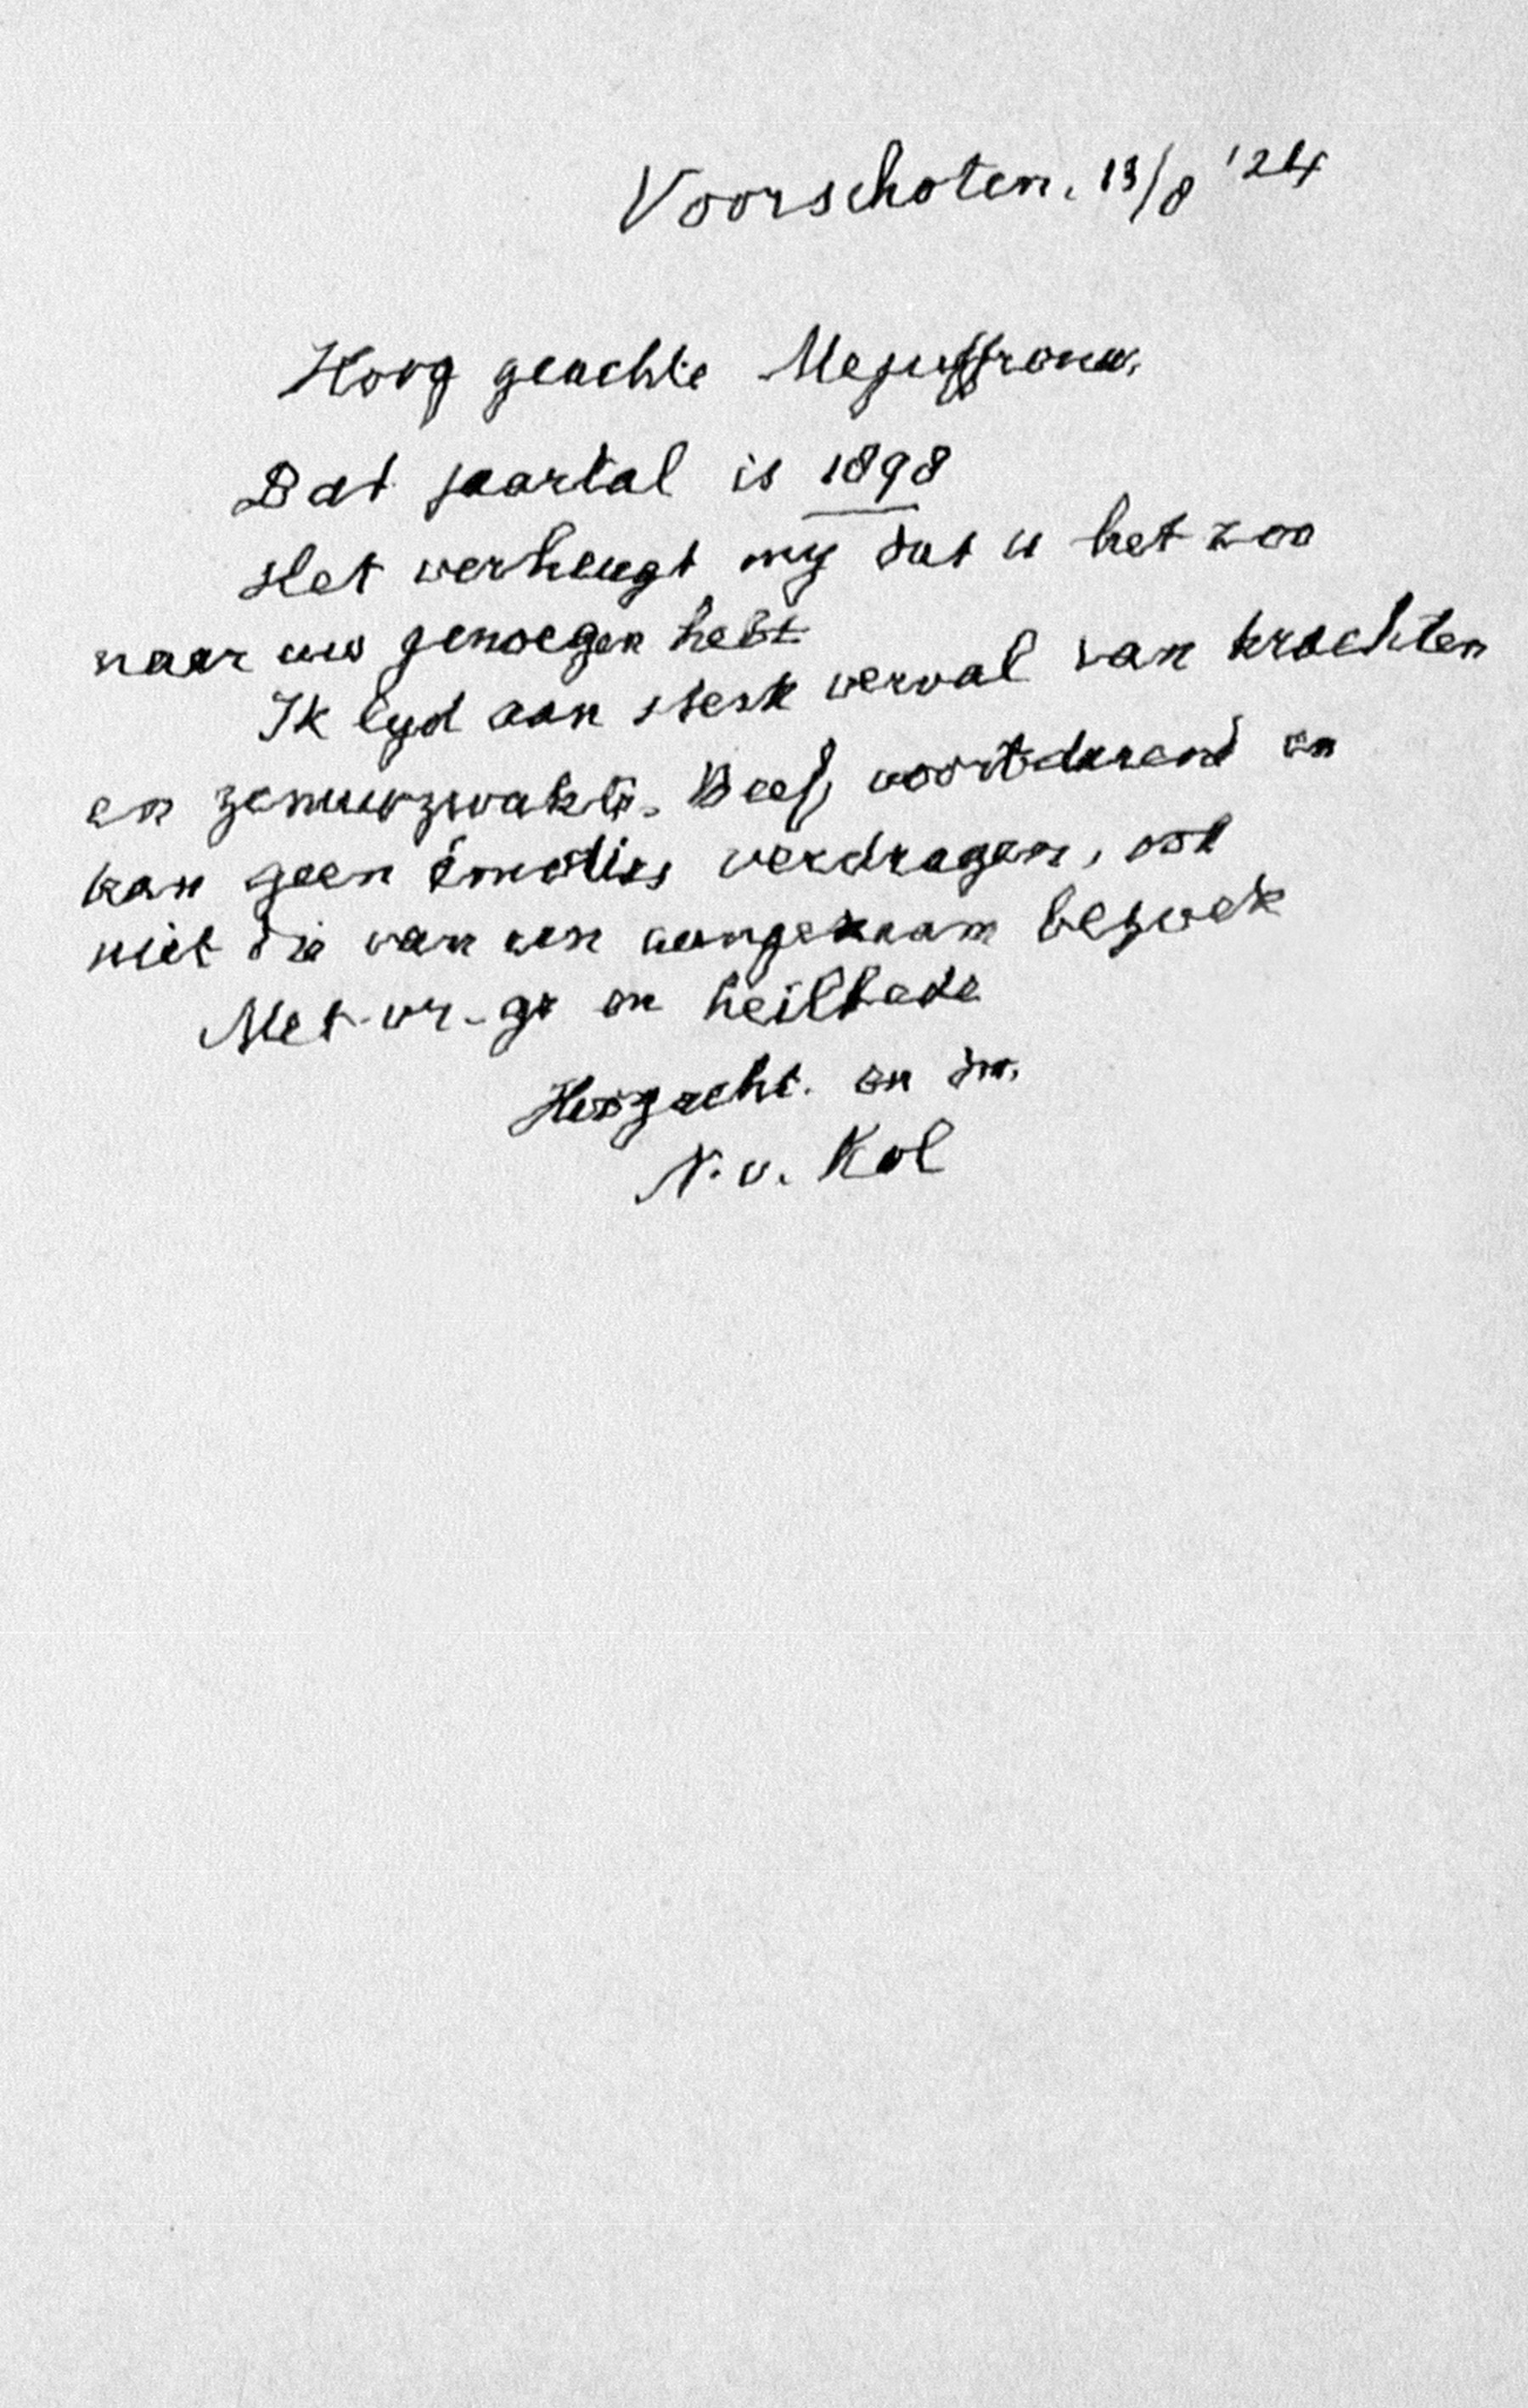 Voorschoten, 13/8 '24
Hoog geachte Mejuffrouw,
Dat jaartal is 1898
Het verheugt my dat u het zoo
naar uw genoegen hebt
Ik lyd aan sterk verval van krachten
en zenuwzwakte. Beef voortdurend en
kan geen émoties verdragen, ook
niet die van een aangenaam bezoek
Met vr. gr en heilbede
Hoogacht. en
N. v. Kol